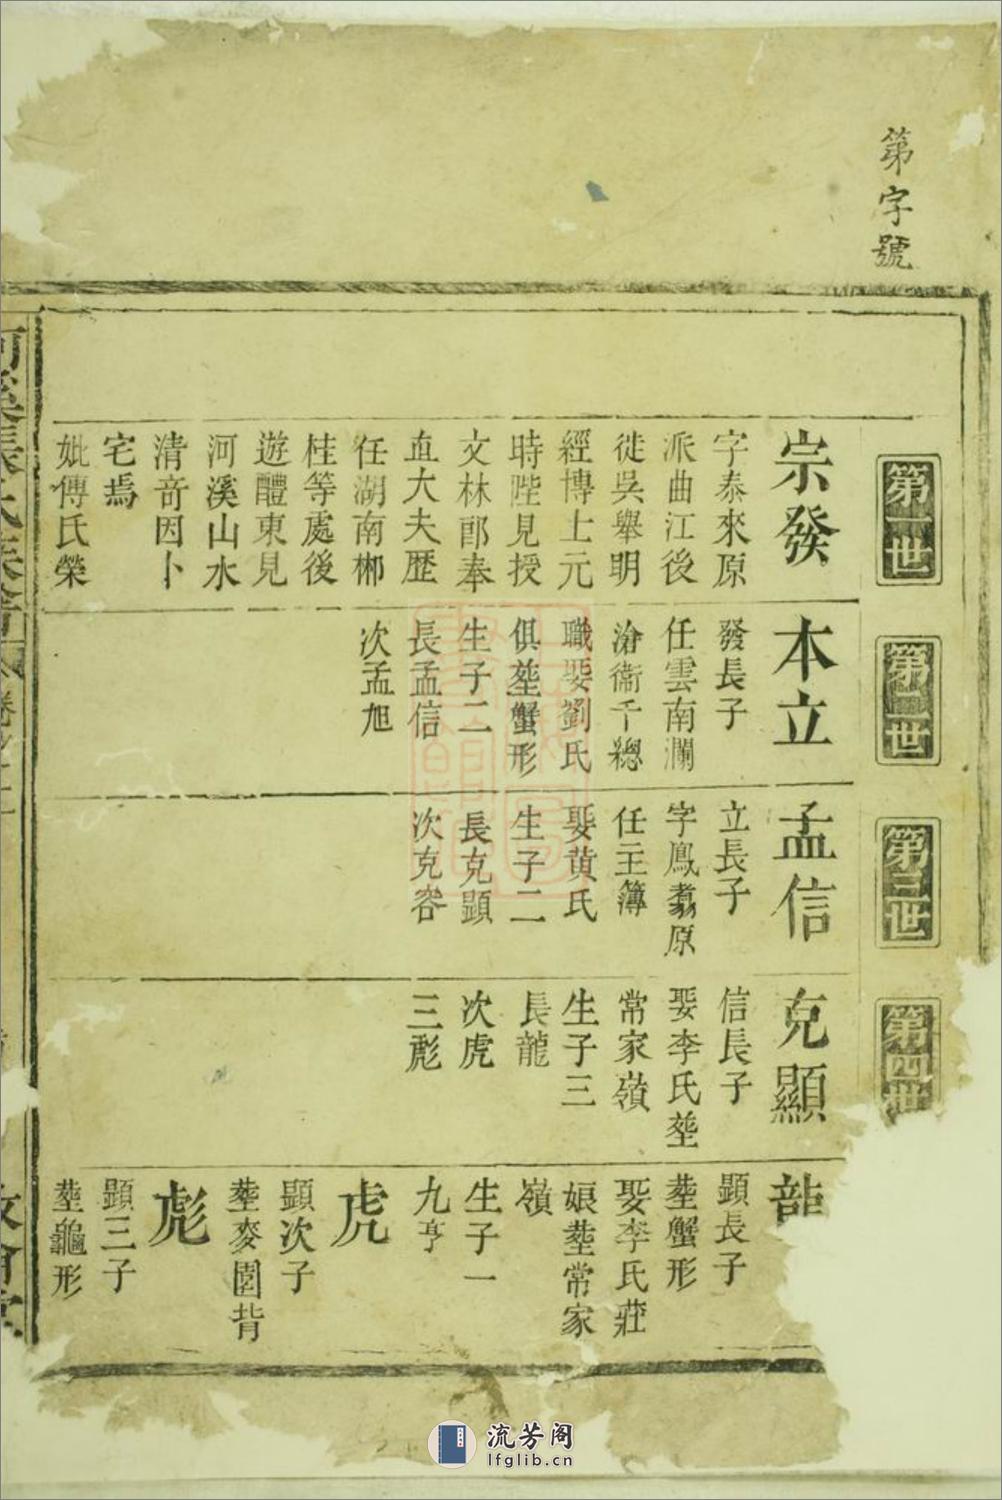 第字號
第一世
宗發
字泰來原
派曲江後
徙吳舉明
經博上元
時陛見授
文林郎奉
直大夫歷
任湖南郴
桂等處後
遊醴東見
河溪山水
清竒因卜
宅焉
妣傅氏榮
第二世
本立
發長子
任雲南瀾
滄衞千總
職娶劉氏
俱塟蟹形
生子二
長孟信
次孟旭
第三世
孟信
立長子
字鳳翥原
任主簿
娶黄氏
生子二
長克顕
次克容
第四世
克顯
信長子
娶李氏塟
常家嶺
生子三
長龍
次虎
三彪
龍
顕長子
塟蟹形
娶李氏莊
娘塟常家
嶺
生子一
九亨
虎
顕次子
塟麥園背
彪
顕三子
塟龜形
河溪張氏族譜
卷之二
流芳阁
lfglib.cn